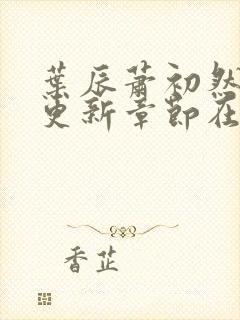 葉辰蕭初然
更新章節在
香芷